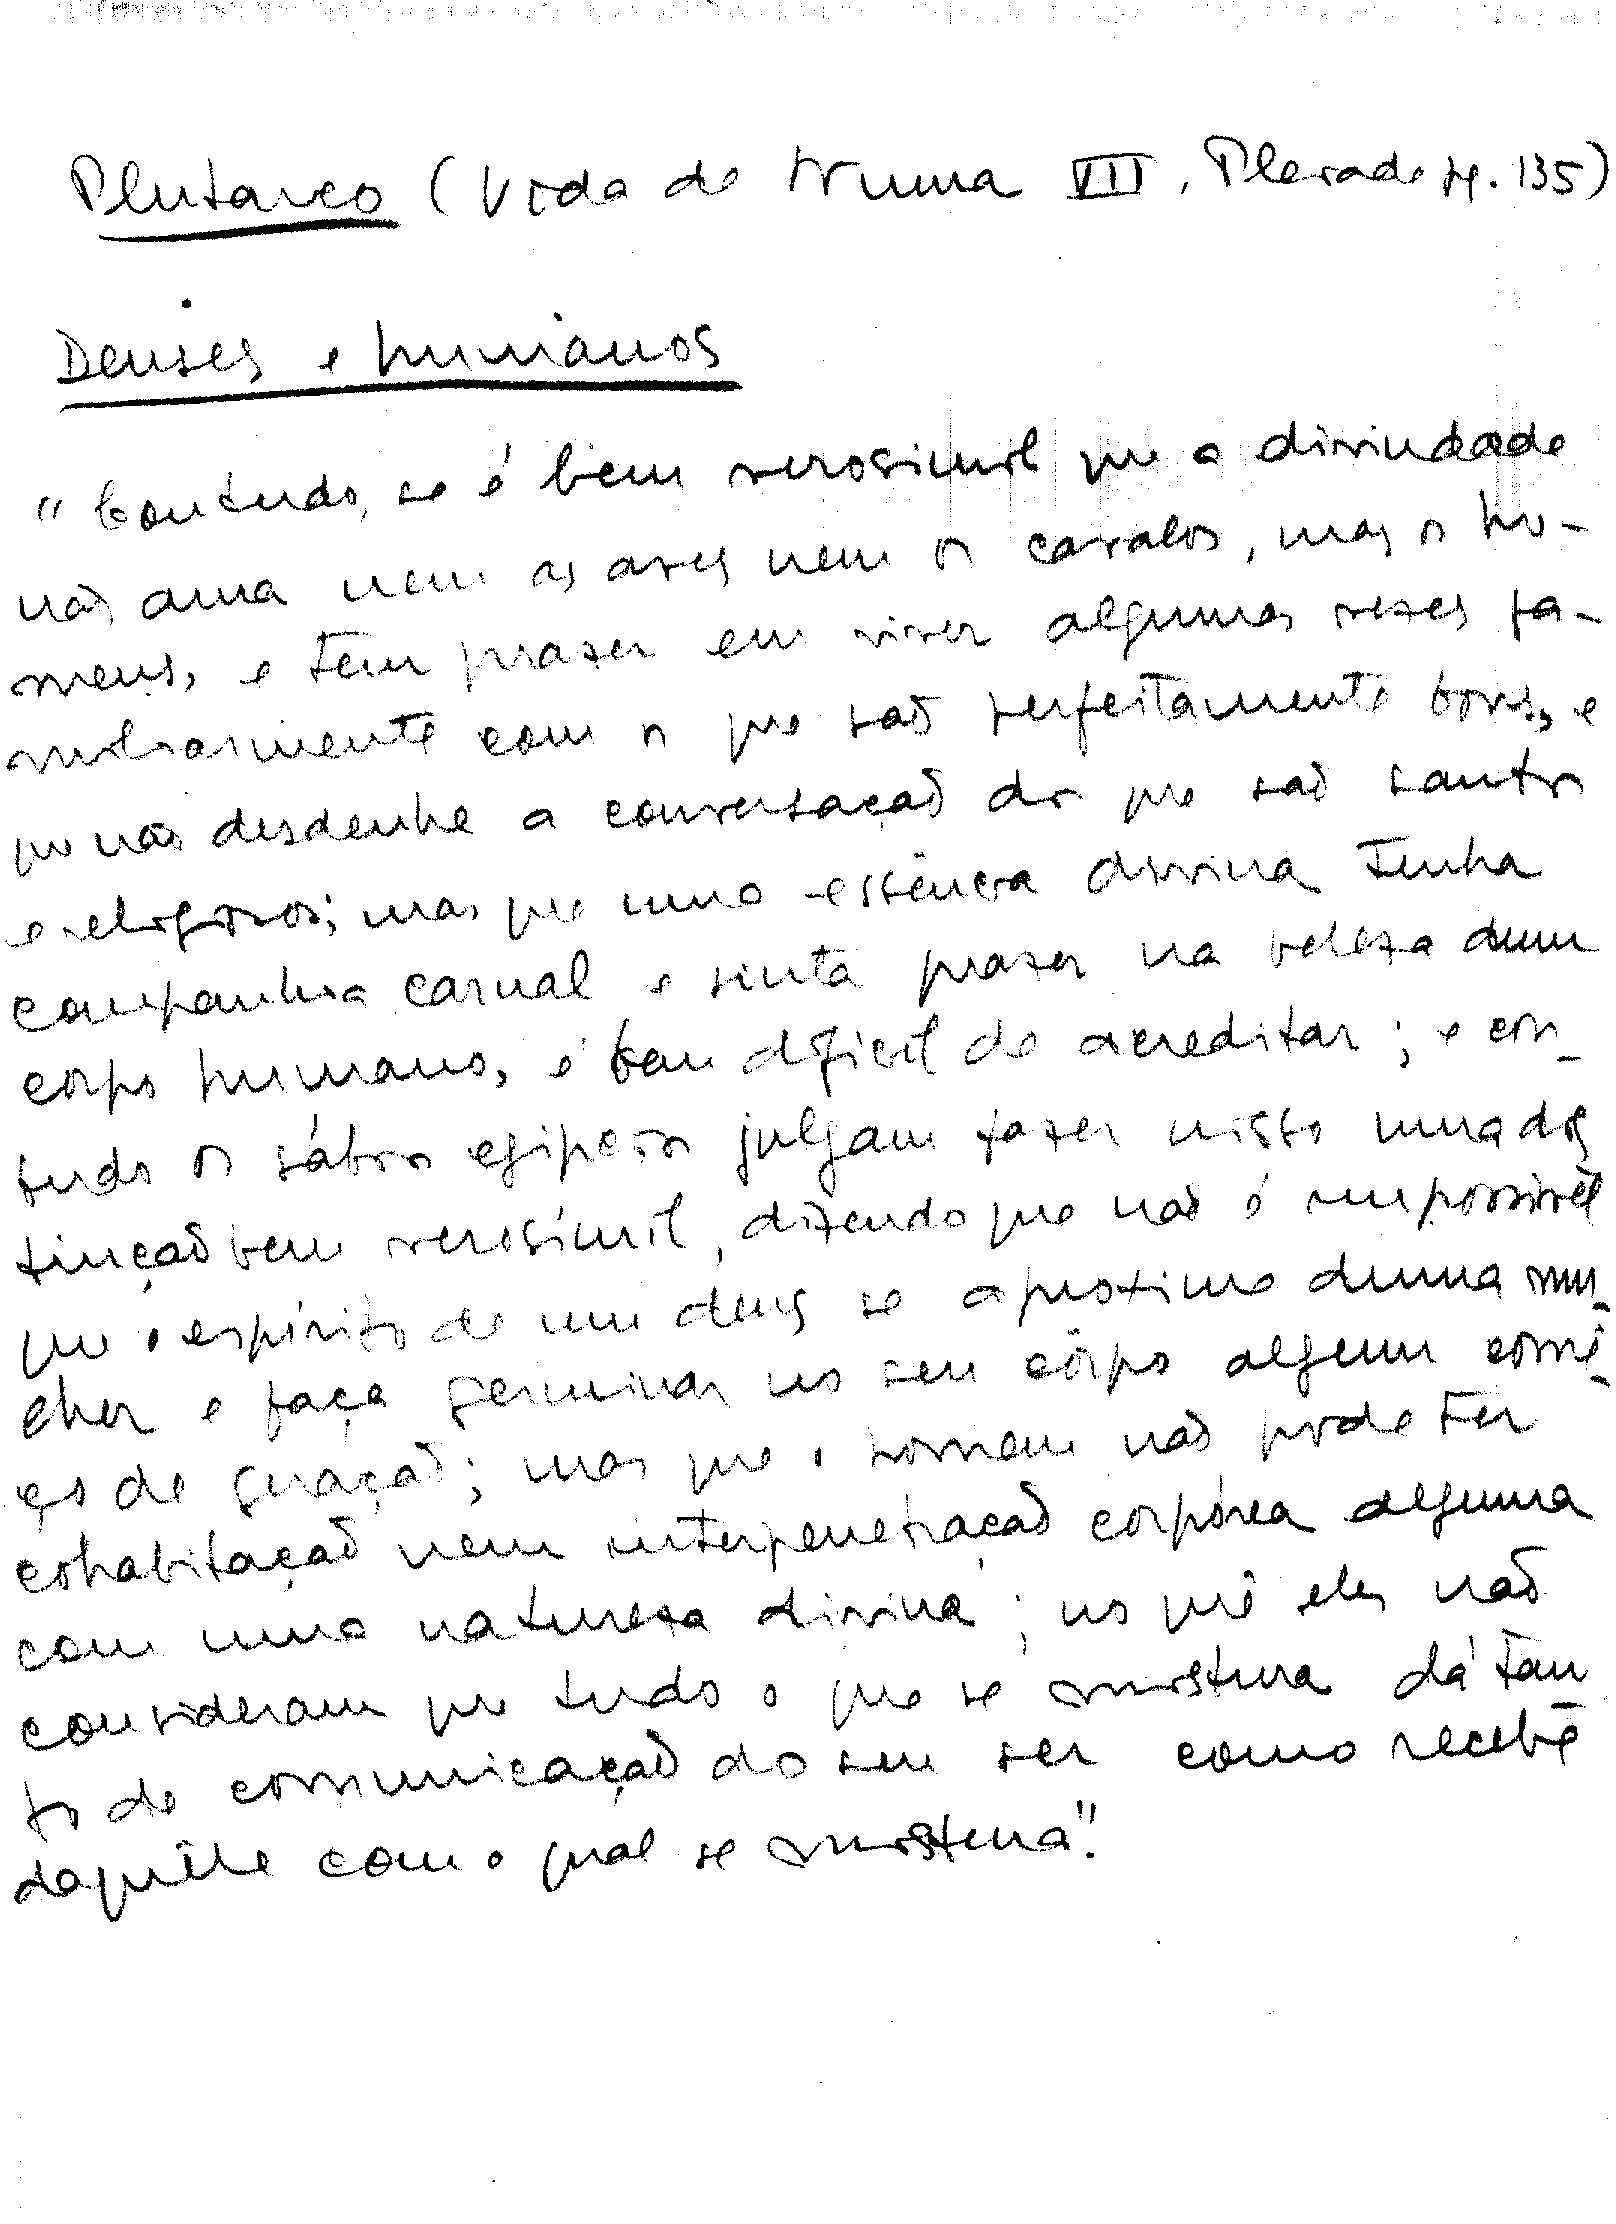 Plutarco (Vida de Numa VII, Pleiade pg. 135)
Deuses e humanos
"Contudo, se é bem verosimil que a divindade
não ama nem as aves nem os cavalos, mas os ho-
mens, e tem prazer em viver algumas vezes fa-
miliarmente com os que são perfeitamente bons, e
que não desdenhe a conversação dos que são santos
e religiosos; mas que uma essência divina tenha
companhia carnal e sinta prazer na beleza dum
corpo humano, é bem dificil de acreditar; e con-
tudo os sábios egipcios julgam fazer nisto uma dis
tinção bem verosímil, dizendo que não é impossivel
que o espírito de um deus se aproxime duma mu-
lher e faça germinar no seu côrpo algum comê-
ço de geração; mas que o homem não pode ter
cohabitação nem interpenetração corpórea alguma
com uma natureza divina; no quê eles não
consideram que tudo o que se mistura dá tan
to de comunicação do seu ser como recebe
daquêle com o qual se mistura".